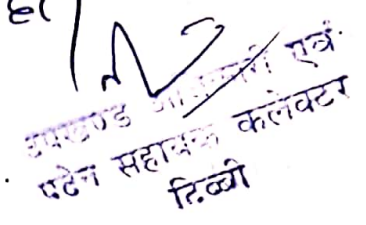 ह।
उपखण्ड अधिकारी एवं
पदेन सहायक कलेक्टर
टिब्बी